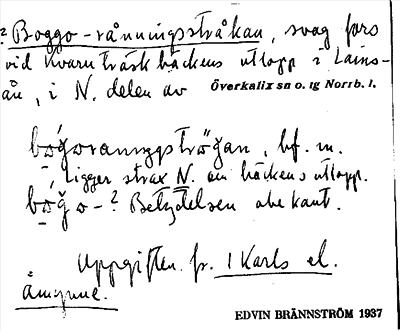 ? Boggo-rånningsstråkan, svag fors
vid Kvarnträskbäckens utlopp i Lains-
ån, i N. delen av Överkalix sn o. tg Norrb. l.
bågoranıŋgstrǫ̈gan, bf. m.
Ligger strax N. om bäckens utlopp.
bågo-? Betydelsen obekant.
Uppgiften fr. 1 Karls el.
Ängsune.
EDVIN BRÄNNSTRÖM 1937